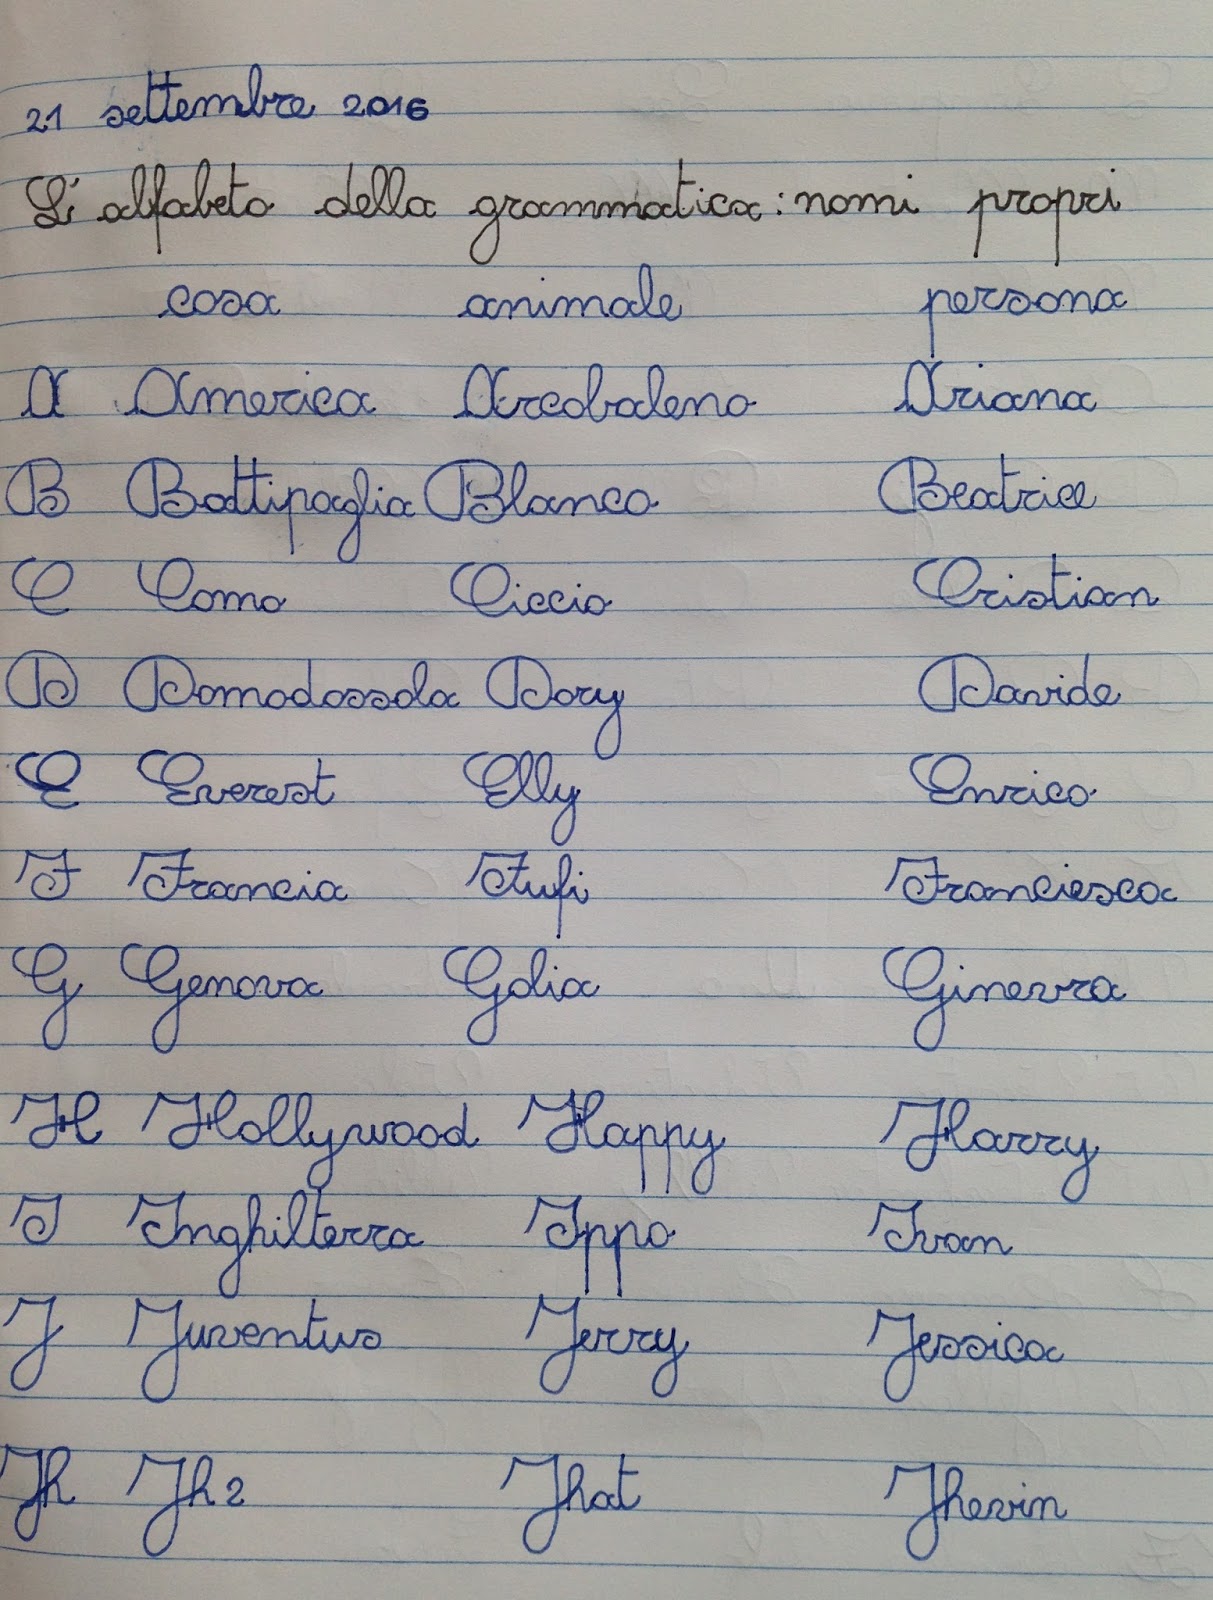 21 settembre 2016
L'alfabeto della grammatica: nomi propri
cosa animale persona
A America Arcobaleno Ariana
B Battipaglia Blanco Beatrice
C Como Ciccio Cristian
D Domodossola Dory Davide
E Everest Elly Enrico
F Francia Fufi Franciesca
G Genova Golia Ginevra
H Hollywood Happy Harry
I Inghilterra Ippo Ivan
J Juventus Jerry Jessica
K K2 Kat Kevin